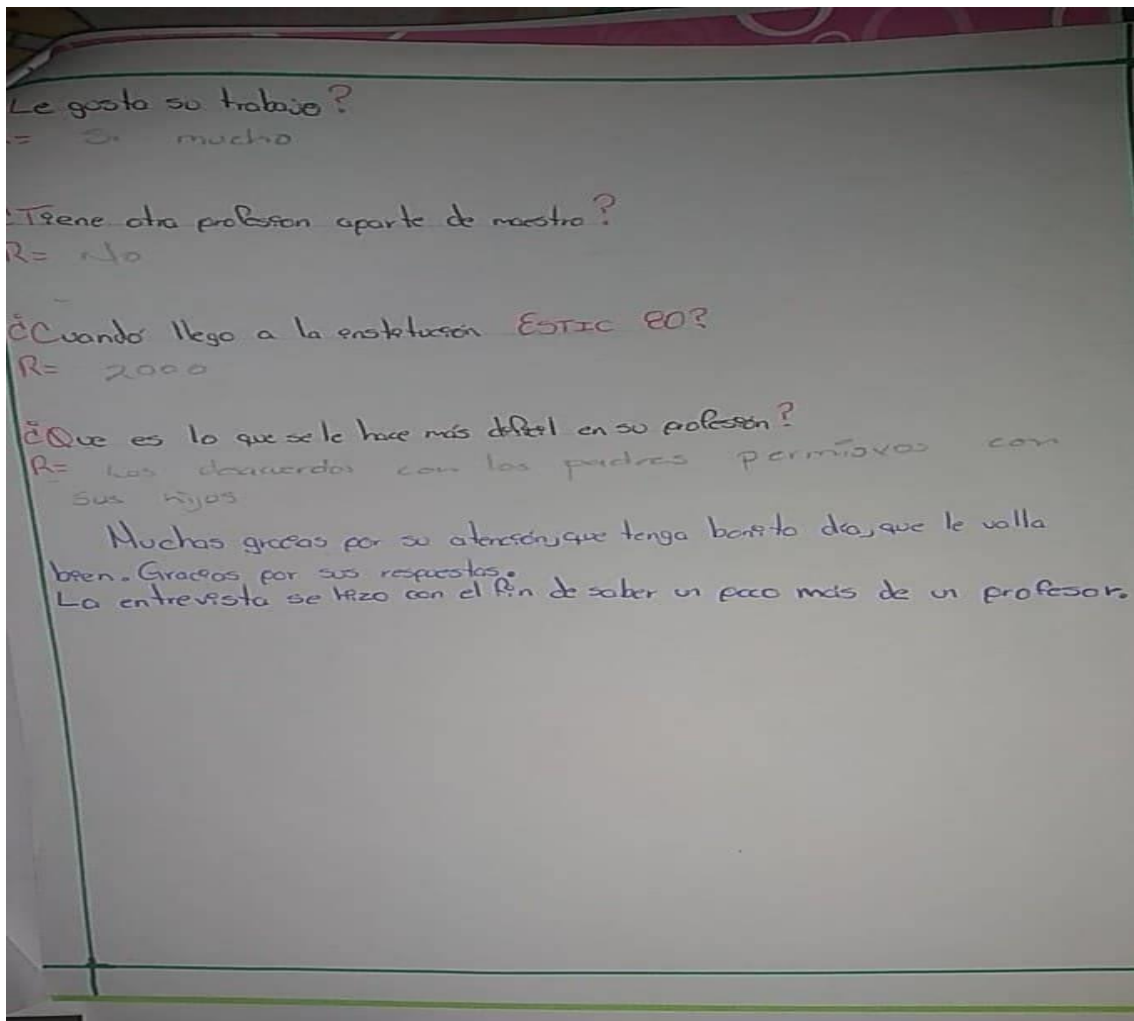 Le gusta su trabajo?
= Si mucho
¿Tiene otra profesion aparte de maestro?
R= No
¿Cuando llego a la institución ESTIC 80?
R= 2000
¿Que es lo que se le hace más dificil en su profesión?
R= Los desacuerdos con los padres permisivos con
sus hijos
Muchas gracias por su atención, que tenga bonito dia, que le valla
bien. Gracias por sus respuestas.
La entrevista se hizo con el fin de saber un poco más de un profesor.